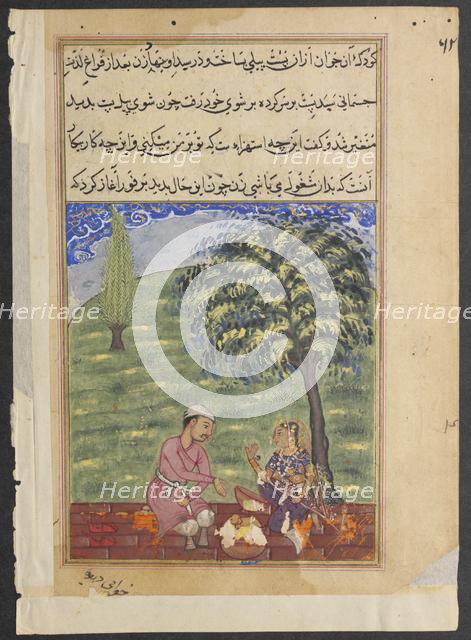 کرد که آن جوان از ان پست پیلی ساخته و در سبد او بنهاد زن بعد از فراغ لذت
جسمانی سبد پست بر سر کرده بر شوی خود رفت چون شوی پیل پست بدید
متغیر شد و گفت این چه استهزاء ست که تو بر من میکنی و این چه کار بیکار
آنست که بدان مشغول می باشی زن چون این حال بدید بر فور آغاز کرد که
Heritage Heritage Heritage
Heritage Heritage Heritage